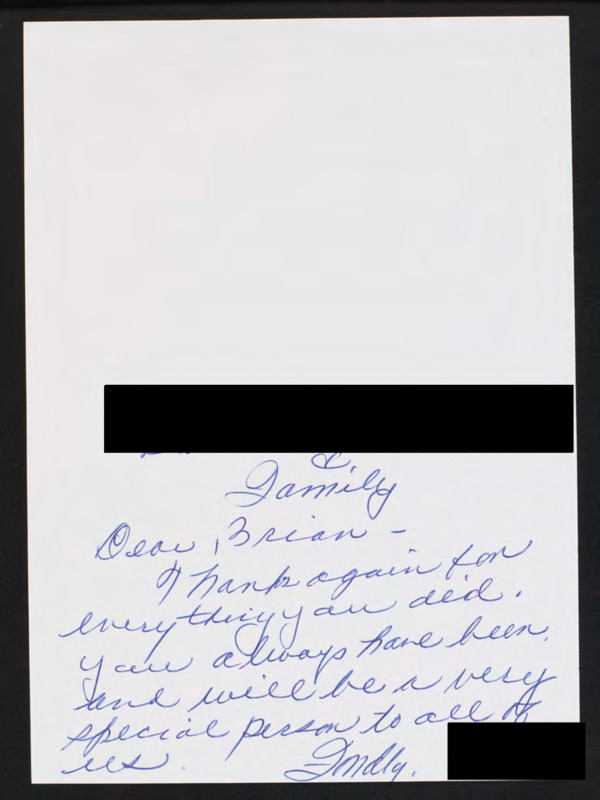 &
Family
Dear Brian -
Thanks again for
everything you did.
You always have been.
and will be a very
special person to all of
us.
Fondly,